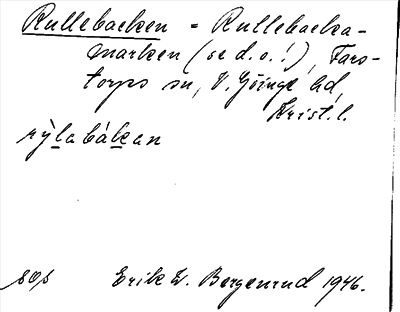 Rullebacken = Rullebacka-
marken (se d.o.!), Fars-
torps sn, V. Göinge hd,
Krist. l.
rỳlabákan
sOs Erik W. Bergenrud 1946.